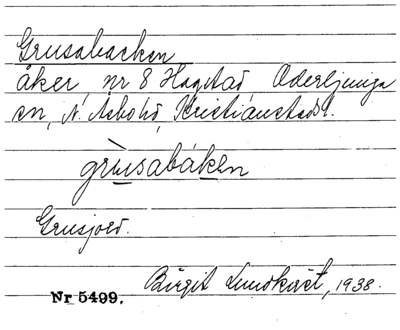 Grusabacken
åker, nr 8 Hagstad Oderljunga
sn, N. Åsbohd, Kristianstads l.
grùsabáken
Grusjord.
Birgit Lundkvist, 1938.
Nr 5499.